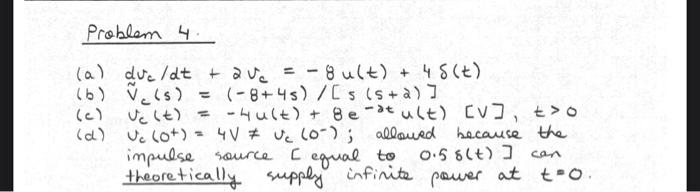 Problem 4.
(a) dvc/dt + 2vc = -8u(t) + 4δ(t)
(b) Ṽc(s) = (-8+4s) / [s(s+2)]
(c) vc(t) = -4u(t) + 8e^-2t u(t) [V], t>0
(d) vc(0+) = 4V ≠ vc(0-); allowed because the
impulse source [equal to 0.5δ(t)] can
theoretically supply infinite power at t=0.